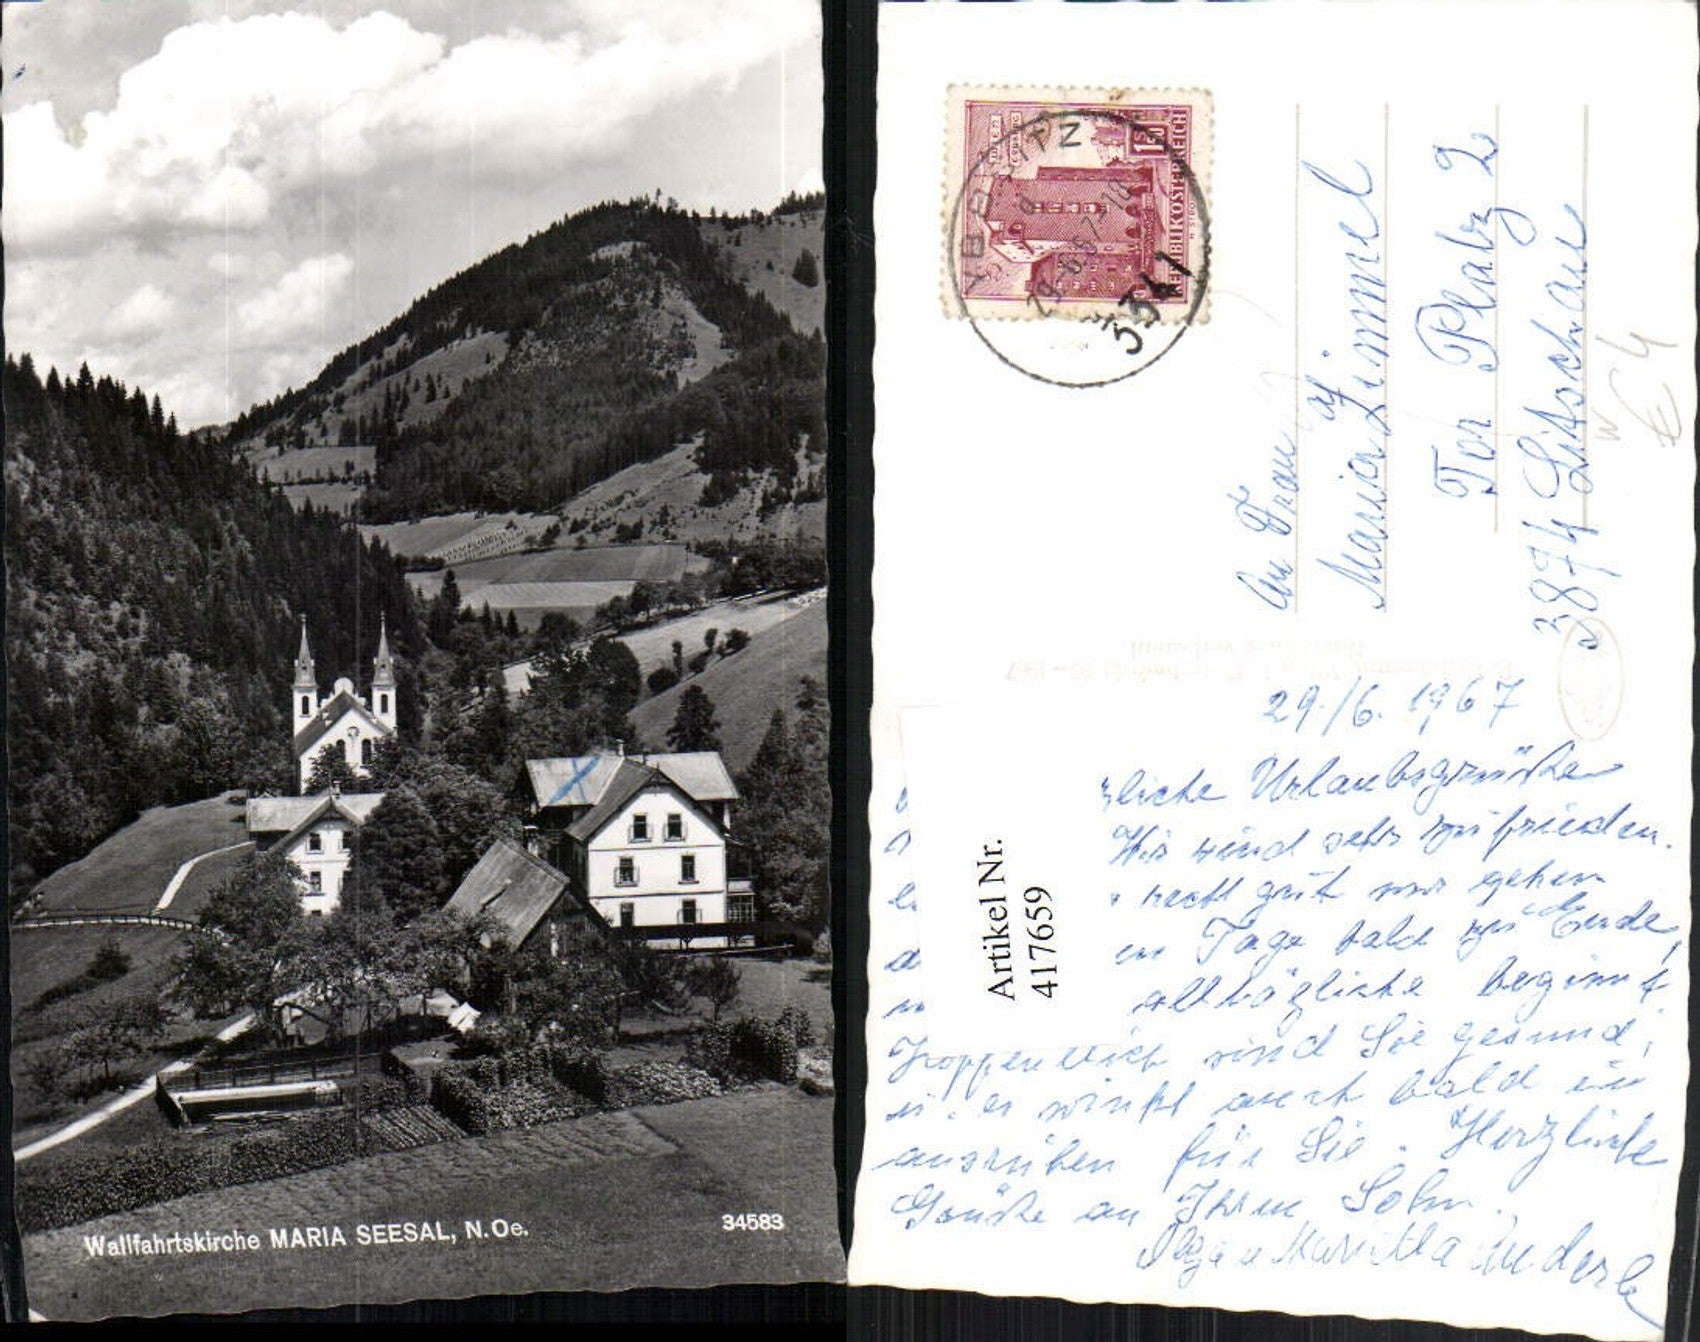 Wallfahrtskirche MARIA SEESAL, N.Oe.
34583
WIEN
ERDBERG
1S50
REPUBLIK ÖSTERREICH
YBBSITZ
29.-6.67-10
3341
An Frau
Maria Zimmel
Tor Platz 2
3874 Litschau
€ 4
29./6. 1967
Urlaubsgrüße
Wir sind sehr zufrieden.
recht gut nur gehen
Tage bald zu Ende,
alltägliche beginnt
Hoffentlich sind Sie gesund,
u. es auch bald ein
ausruhen für Sie. Herzliche
Grüße an Ihren Sohn.
Anderle
Artikel Nr.
417659